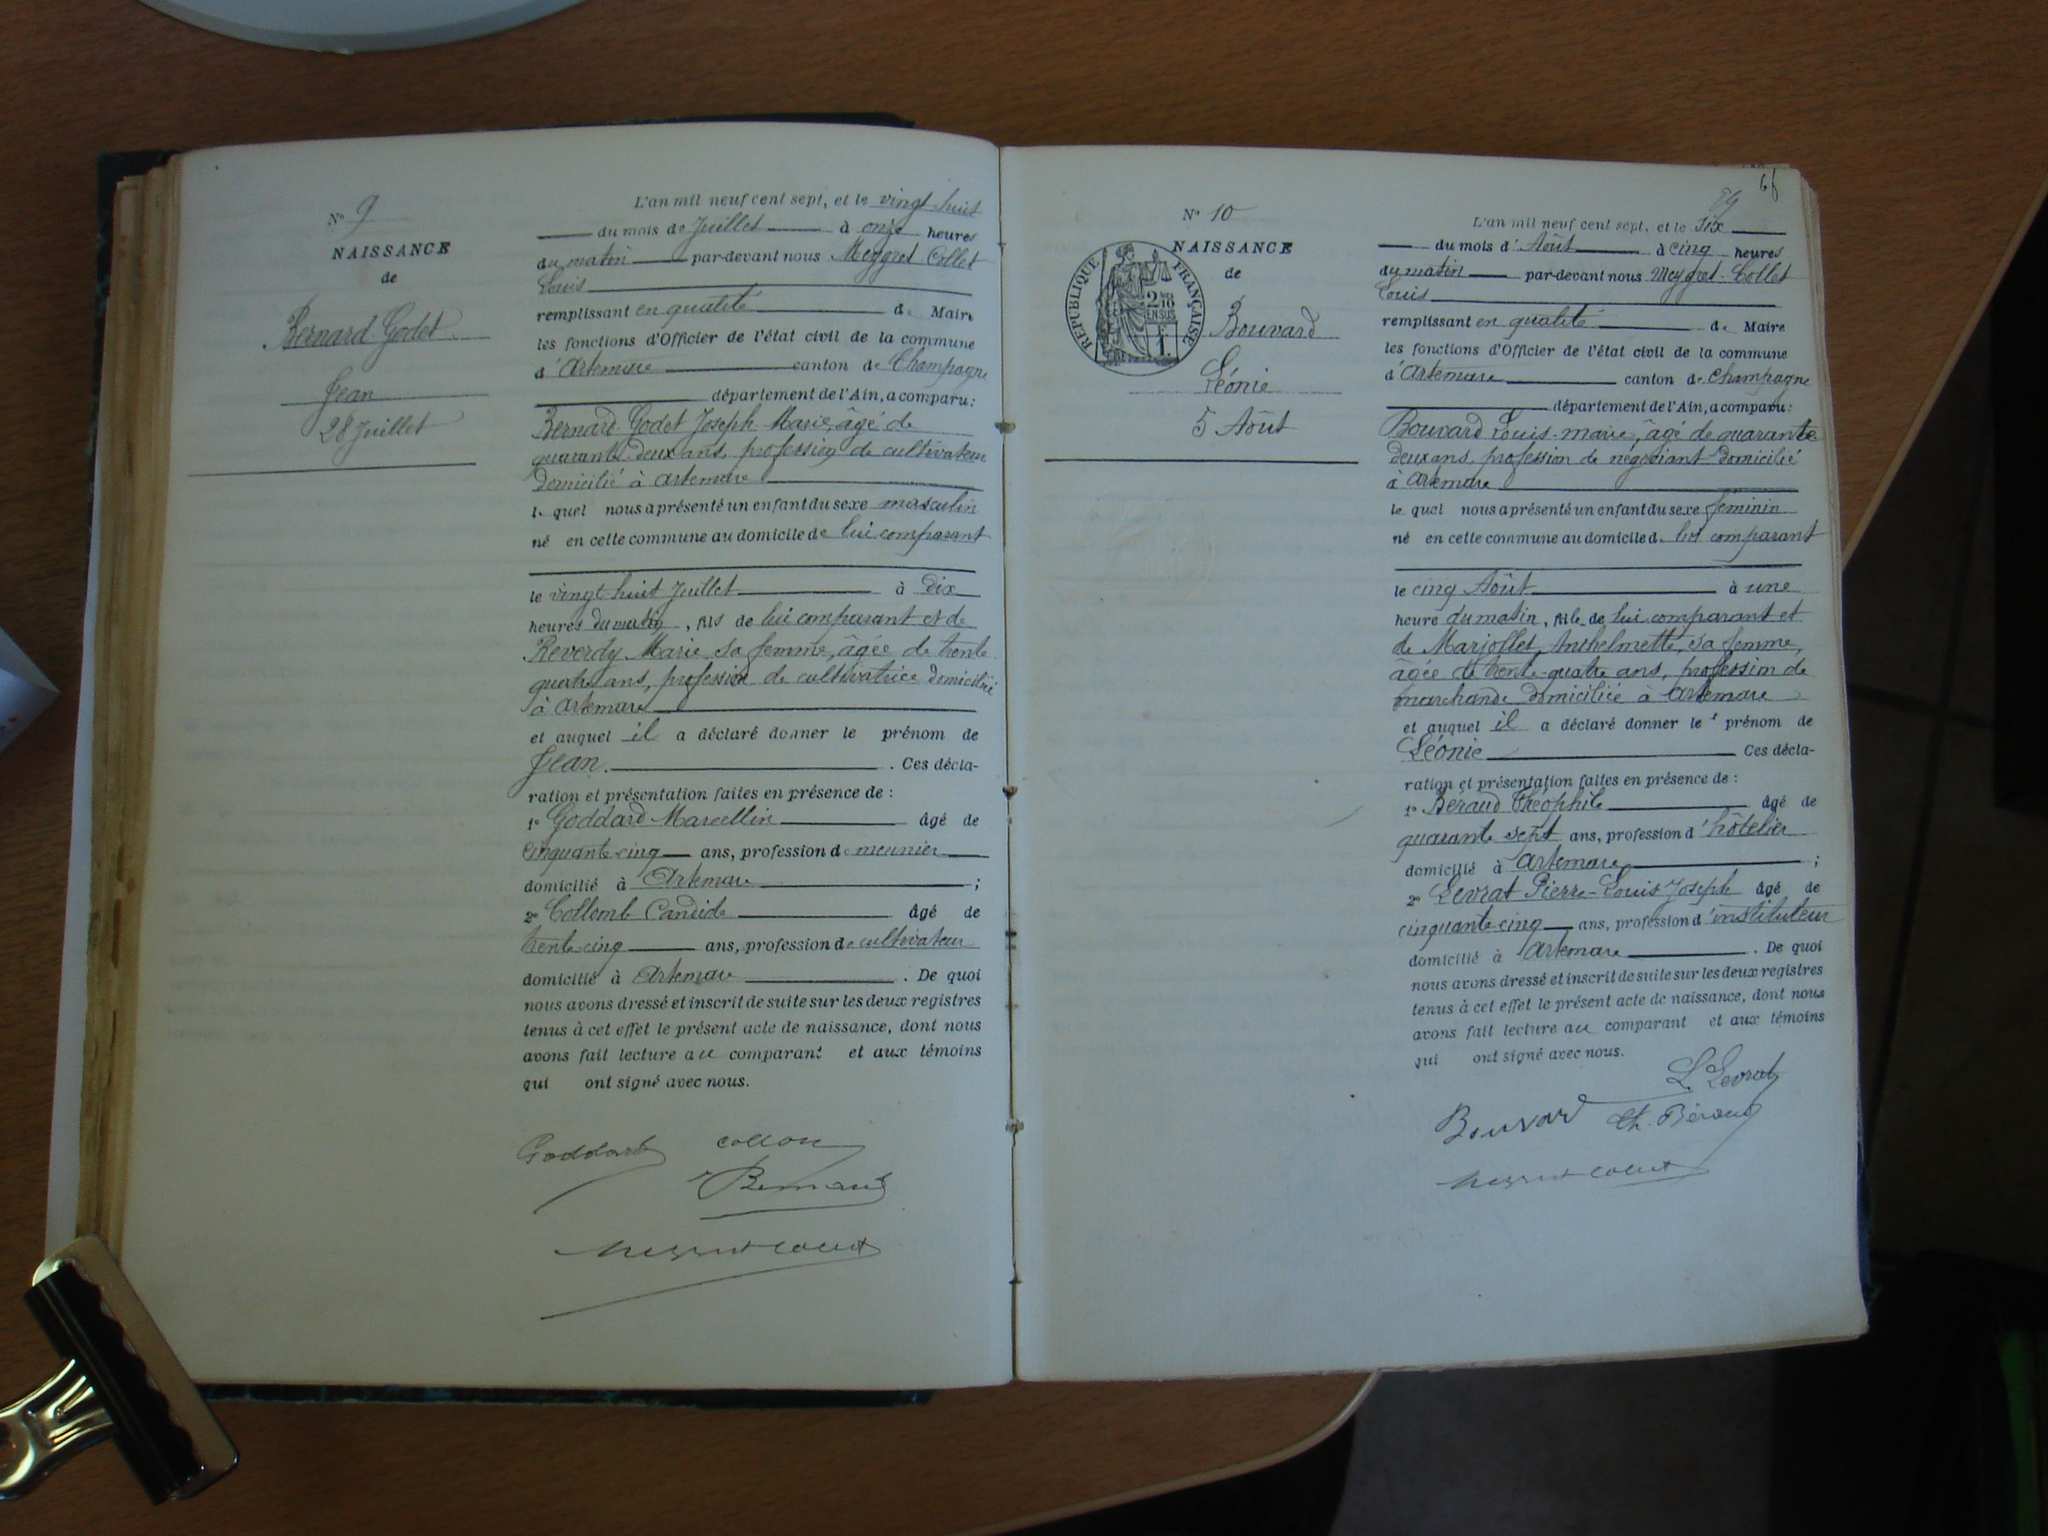 No 9
NAISSANCE
de
Bernard-Godet
Jean
28 Juillet
L'an mil neuf cent sept, et le vingt huit
du mois de Juillet à onze heures
du matin par-devant nous Meygret Collet
Louis
remplissant en qualité de Maire
les fonctions d'Officier de l'état civil de la commune
d'Artemare canton de Champagne
département de l'Ain, a comparu:
Bernard-Godet Joseph Marie, âgé de
quarante deux ans, profession de cultivateur
domicilié à Artemare
le quel nous a présenté un enfant du sexe masculin
né en cette commune au domicile de lui comparant
le vingt huit Juillet à dix
heures du matin, fils de lui comparant et de
Reverdy Marie sa femme, âgée de trente
quatre ans, profession de cultivatrice domiciliée
à Artemare
et auquel il a déclaré donner le prénom de
Jean. Ces décla-
ration et présentation faites en présence de :
1° Goddard Marcellin âgé de
cinquante-cinq ans, profession de meunier
domicilié à Artemare ;
2° Collomb Candide âgé de
trente-cinq ans, profession de cultivateur
domicilié à Artemare. De quoi
nous avons dressé et inscrit de suite sur les deux registres
tenus à cet effet le présent acte de naissance, dont nous
avons fait lecture au comparant et aux témoins
qui ont signé avec nous.
Goddard
Bernard
No 10
NAISSANCE
de
RÉPUBLIQUE FRANÇAISE
2 10
EN SUS
Bouvard
Léonie
5 Août
L'an mil neuf cent sept, et le Six
du mois d'Août à cinq heures
du matin par-devant nous Meygret-Collet
Louis
remplissant en qualité de Maire
les fonctions d'Officier de l'état civil de la commune
d'Artemare canton de Champagne
département de l'Ain, a comparu:
Bouvard Louis-marie, âgé de quarante
deux ans, profession de négociant domicilié
à Artemare
le quel nous a présenté un enfant du sexe féminin
né en cette commune au domicile de lui comparant
le cinq Août à une
heure du matin, fille de lui comparant et
de Marjollet Anthelmette sa femme,
âgée de trente-quatre ans, profession de
marchande domiciliée à Artemare
et auquel il a déclaré donner le prénom de
Léonie Ces décla-
ration et présentation faites en présence de :
1° Béraud Théophile âgé de
quarante sept ans, profession d'hôtelier
domicilié à Artemare ;
2° Levrat Pierre-Louis Joseph âgé de
cinquante-cinq ans, profession d'instituteur
domicilié à Artemare. De quoi
nous avons dressé et inscrit de suite sur les deux registres
tenus à cet effet le présent acte de naissance, dont nous
avons fait lecture au comparant et aux témoins
qui ont signé avec nous.
L. Levrat
Bouvard Th. Béraud